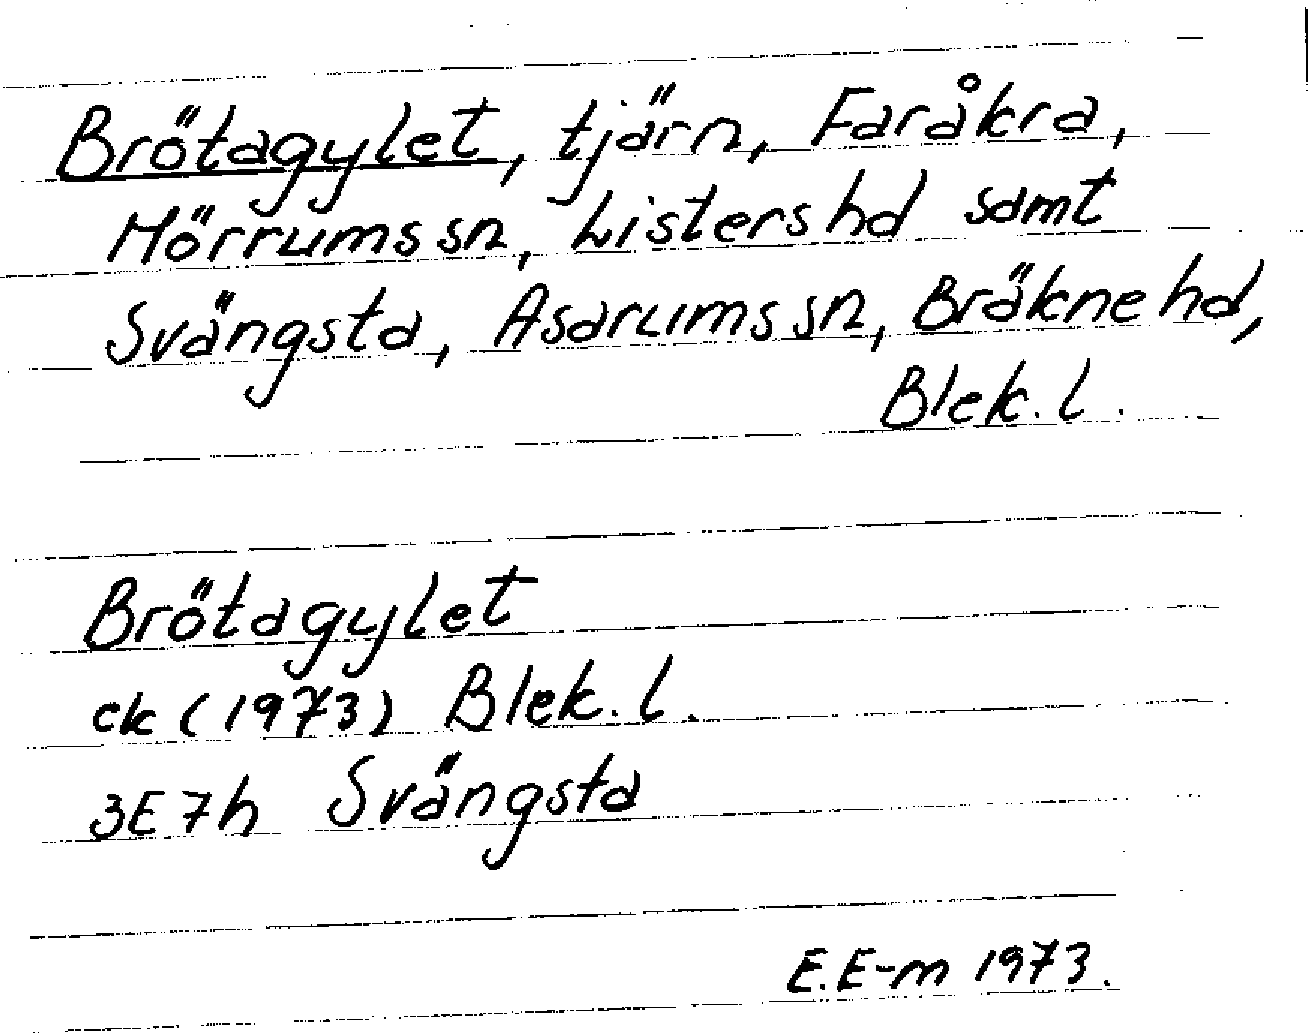 Brötagylet, tjärn, Faråkra,
Mörrums sn, Listers hd samt
Svängsta, Asarums sn, Bräkne hd,
Blek. l.
Brötagylet
ek (1973) Blek. l.
3E7h Svängsta
E.E-m 1973.